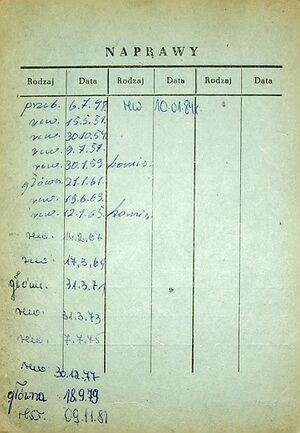 NAPRAWY
Rodzaj Data Rodzaj Data Rodzaj Data
przeb. 6.7.48 rew 10.01.84
rew. 15.5.51.
rew. 30.10.54.
rew. 9.7.57.
rew. 30.1.59 komis.
główn. 21.1.61.
rew. 19.6.63.
rew. 12.1.65. komis.
rew. 14.2.67
rew. 17.3.69
główn. 31.3.71
rew. 31.3.73
rew. 7.7.75
rew 30.12.77
główna 18.9.79
rew. 09.11.81